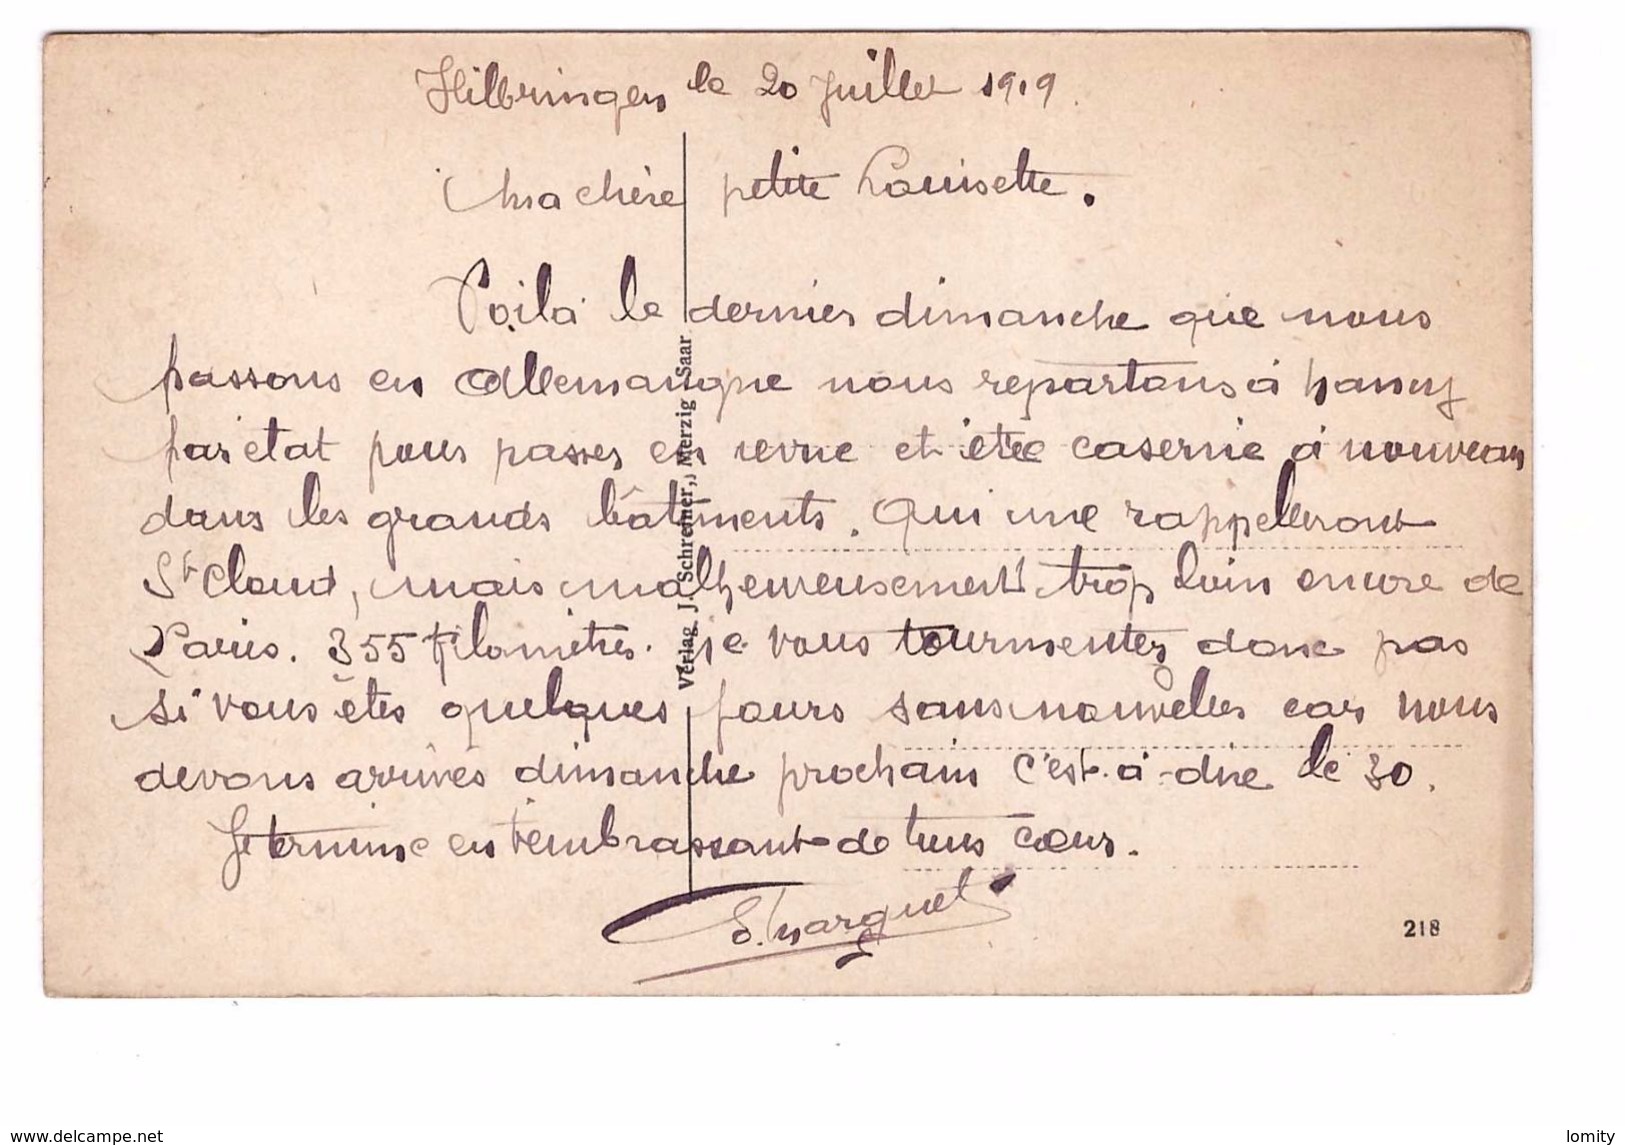 Hilbringen le 20 Juillet 1919.
Ma chère petite Louisette.
Voilà le dernier dimanche que nous
passons en Allemangne nous repartons à Nancy
par état pour passer en revue et être caserné à nouveau
dans les grands bâtiments. Qui me rappelleront
St Cloud, mais malheureusement trop loin encore de
Paris. 355 Kilomètres. ne vous tourmentez donc pas
si vous êtes quelques jours sans nouvelles car nous
devons arriver dimanche prochain c'est-à-dire le 30.
Je termine en t'embrassant de tous cœur.
E. Marquet
Verlag J. Schreiner, Merzig Saar
218
www.delcampe.net
lomity